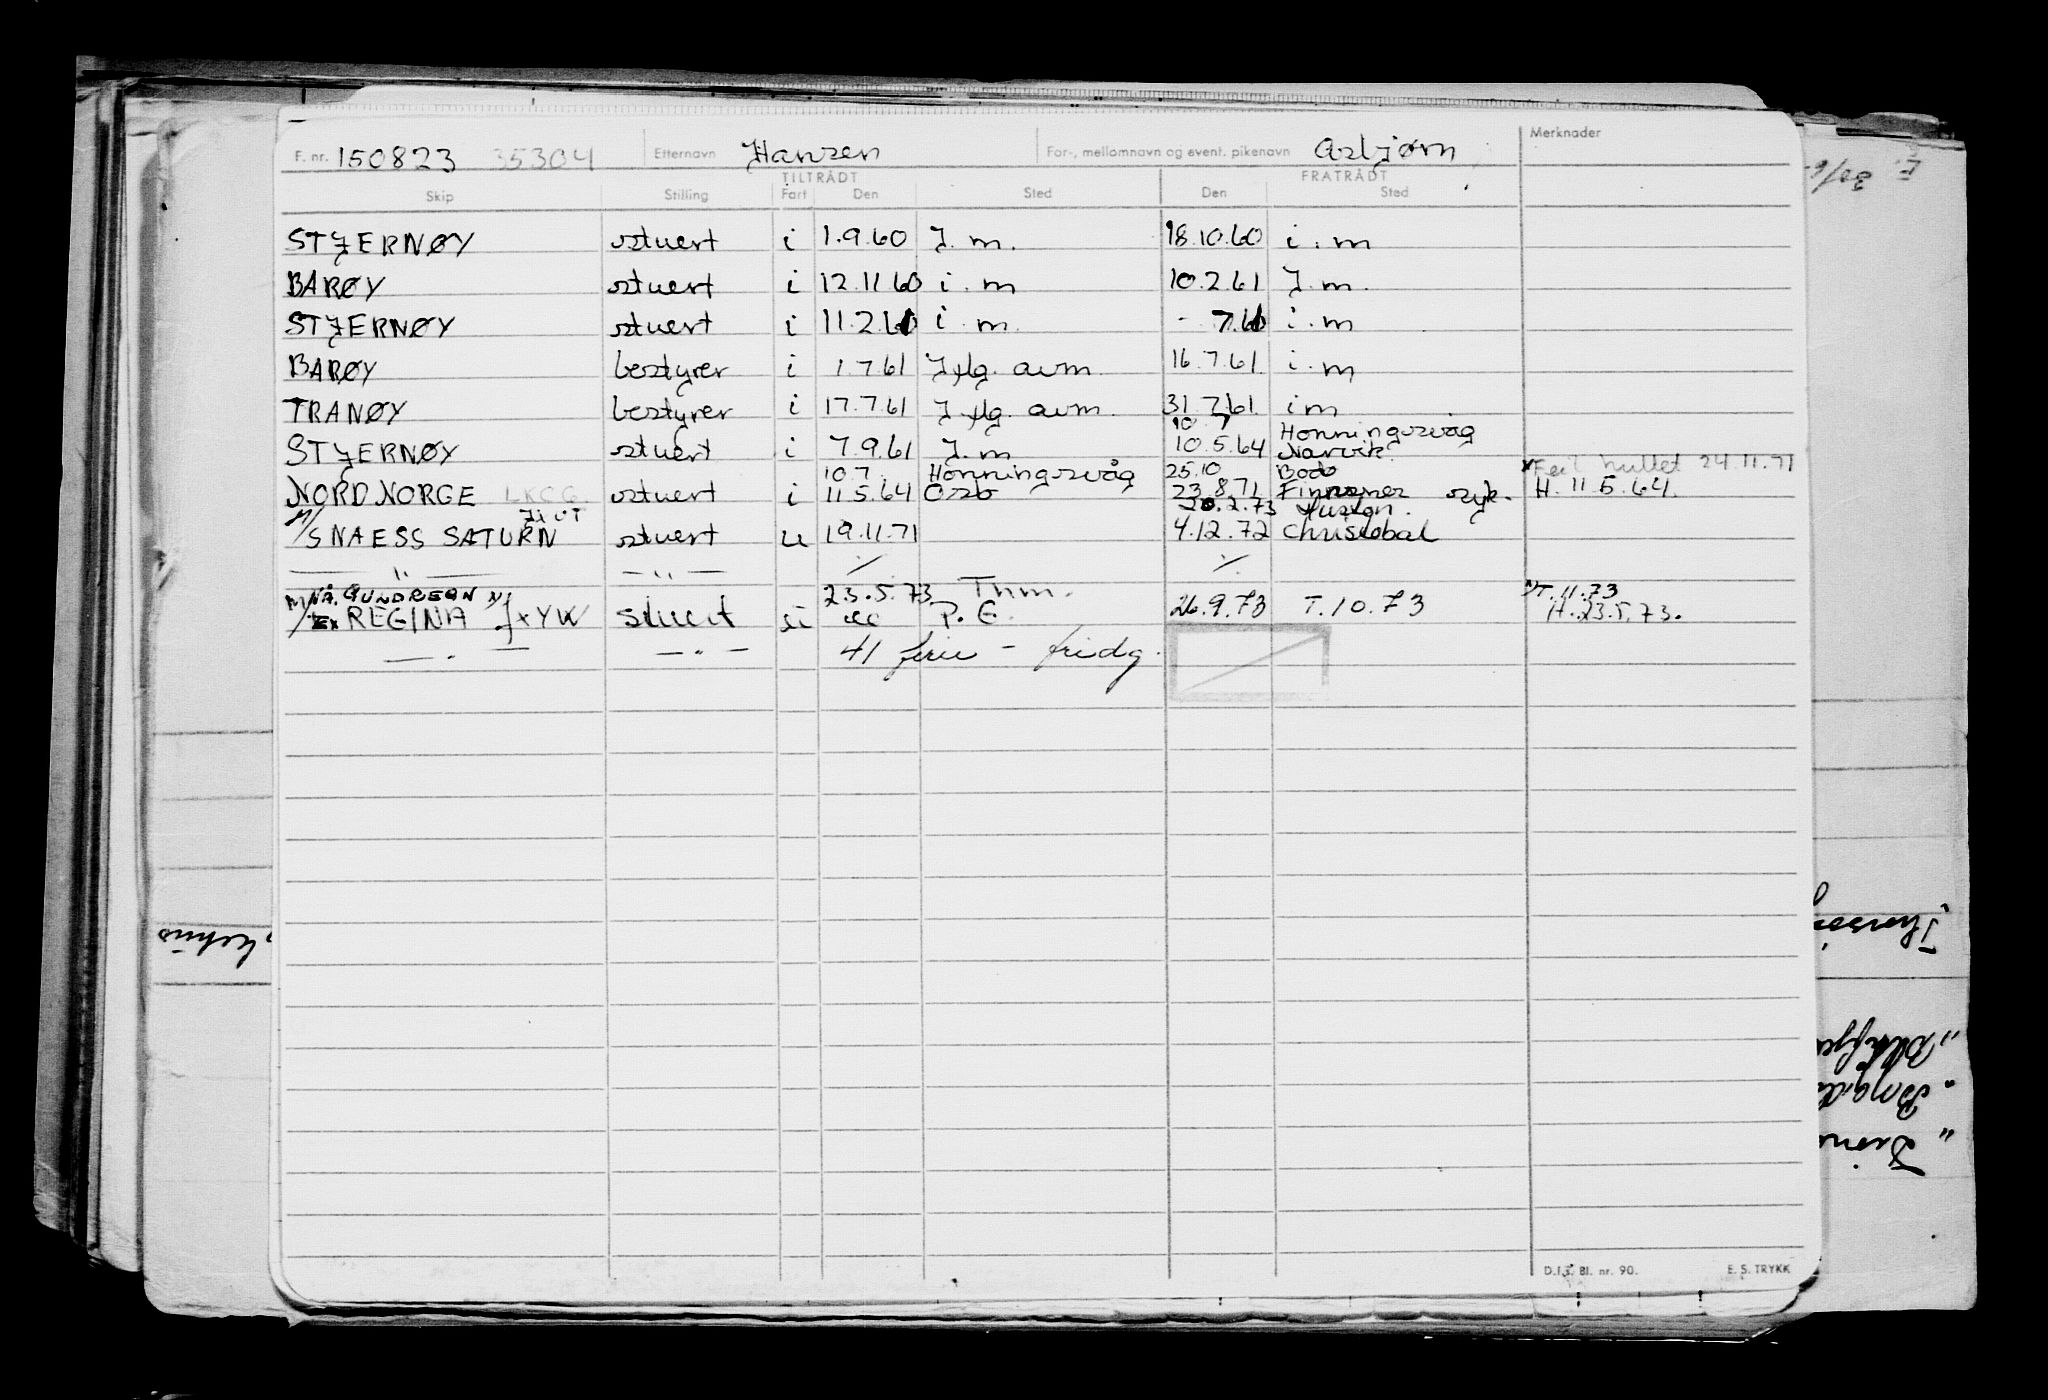 F. nr. 150823 35304 Etternavn Hansen For-, mellomnavn og event. pikenavn Asbjørn Merknader
TILTRÅDT FRATRÅDT
Skip Stilling Fart Den Sted Den Sted
STJERNØY stuert i 1.9.60 J. m. 18.10.60 i. m
BARØY stuert i 12.11 60 i. m 10.2.61 J. m.
STJERNØY stuert i 11.2.61 i. m. - 7.61 i. m
BARØY bestyrer i 1.7.61 Jflg. avm. 16.7.61 i. m
TRANØY bestyrer i 17.7.61 J flg. avm. 31.7.61 i m
10.7 Honningsvåg
STJERNØY stuert i 7.9.61 J. m 10.5.64 Narvik
10 7. Honningsvåg 25.10 Bodø Feil hullet 24.11.71
NORD NORGE LKCG stuert i 11.5.64 Oslo 23.8.71 Finnsnes syk. H. 11 5.64.
20.2.73
M/S NAESS SATURN stuert u 19.11.71 4.12.72 Christobal
— " — — " — / /
NÅ. GUNDREGN 23.5.73 Thm. T. 11.73
M/ Ex REGINA JXYW stuert P. G. 26.9.73 T. 10. 73 H. 23.5.73.
— " — — " — 41 ferie - fridg.
D.I.S. Bl. nr. 90. E. S. TRYKK